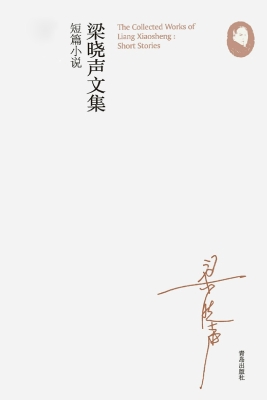 梁晓声文集
短篇小说
The Collected Works of
Liang Xiaosheng :
Short Stories
梁晓声
青岛出版社